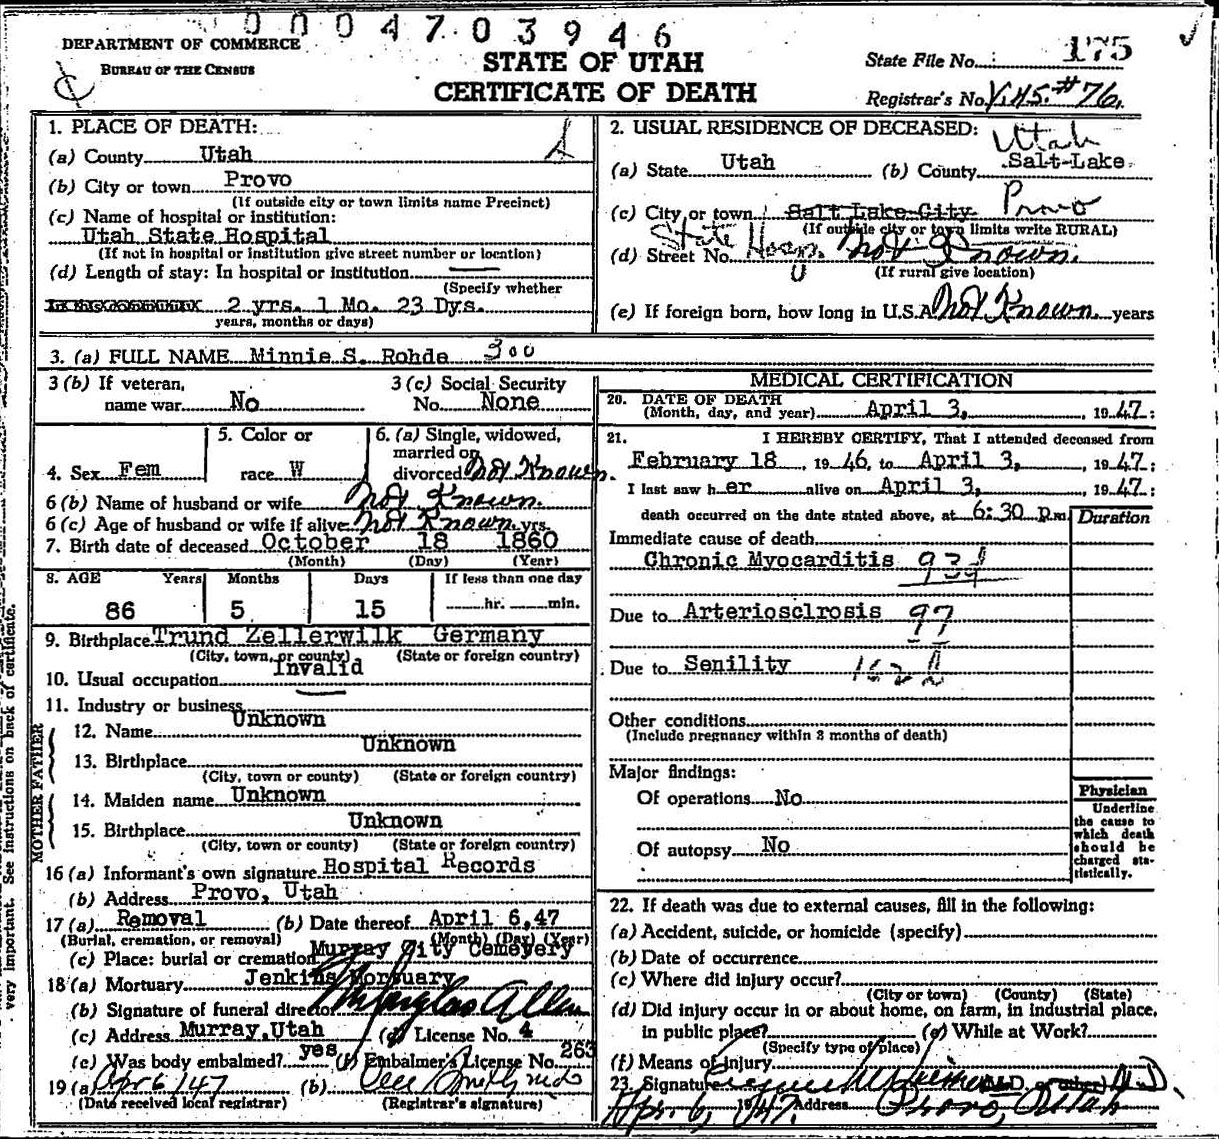 0004703946
DEPARTMENT OF COMMERCE
BUREAU OF THE CENSUS
STATE OF UTAH
CERTIFICATE OF DEATH
State File No. 175
Registrar's No. #76.
1. PLACE OF DEATH:
(a) County Utah
(b) City or town Provo
(If outside city or town limits name Precinct)
(c) Name of hospital or institution:
Utah State Hospital
(If not in hospital or institution give street number or location)
(d) Length of stay: In hospital or institution
(Specify whether
2 yrs. 1 Mo. 23 Dys.
years, months or days)
2. USUAL RESIDENCE OF DECEASED:
Utah
(a) State Utah (b) County Salt-Lake
(c) City or town Salt Lake City Provo
(If outside city or town limits write RURAL)
(d) Street No. State Hosp. Not Known.
(If rural give location)
(e) If foreign born, how long in U.S.A. Not Known. years
3. (a) FULL NAME Minnie S. Rohde 300
3 (b) If veteran, name war No
3 (c) Social Security No. None
4. Sex Fem
5. Color or race W
6. (a) Single, widowed, married or divorced Not Known.
6 (b) Name of husband or wife Not Known.
6 (c) Age of husband or wife if alive Not Known yrs.
7. Birth date of deceased October 18 1860
(Month) (Day) (Year)
8. AGE Years Months Days If less than one day
86 5 15 hr. min.
9. Birthplace Trund Zellerwilk Germany
(City, town, or county) (State or foreign country)
10. Usual occupation Invalid
11. Industry or business
FATHER
12. Name Unknown
13. Birthplace Unknown
(City, town or county) (State or foreign country)
MOTHER
14. Maiden name Unknown
15. Birthplace Unknown
(City, town or county) (State or foreign country)
16 (a) Informant's own signature Hospital Records
(b) Address Provo, Utah
17 (a) Removal (b) Date thereof April 6,47
(Burial, cremation, or removal) (Month) (Day) (Year)
(c) Place: burial or cremation Murray City Cemetery
18 (a) Mortuary Jenkins Mortuary
(b) Signature of funeral director Allen
(c) Address Murray,Utah (d) License No. 4
(e) Was body embalmed? yes (f) Embalmer's License No. 263
19 (a) Apr 6/47 (b)
(Date received local registrar) (Registrar's signature)
MEDICAL CERTIFICATION
20. DATE OF DEATH
(Month, day, and year) April 3, , 1947;
21. I HEREBY CERTIFY, That I attended deceased from
February 18 , 1946, to April 3, , 1947;
I last saw her alive on April 3, , 1947;
death occurred on the date stated above, at 6:30 p.m.
Duration
Immediate cause of death
Chronic Myocarditis 93d
Due to Arteriosclrosis 97
Due to Senility 162
Other conditions
(Include pregnancy within 3 months of death)
Major findings:
Of operations No
Of autopsy No
Physician
Underline
the cause to
which death
should be
charged sta-
tistically.
22. If death was due to external causes, fill in the following:
(a) Accident, suicide, or homicide (specify)
(b) Date of occurrence
(c) Where did injury occur?
(City or town) (County) (State)
(d) Did injury occur in or about home, on farm, in industrial place,
in public place? (e) While at Work?
(Specify type of place)
(f) Means of injury
23. Signature (M.D. or other) M.D.
Apr. 6, 1947. Address Provo, Utah
very important. See instructions on back of certificate.